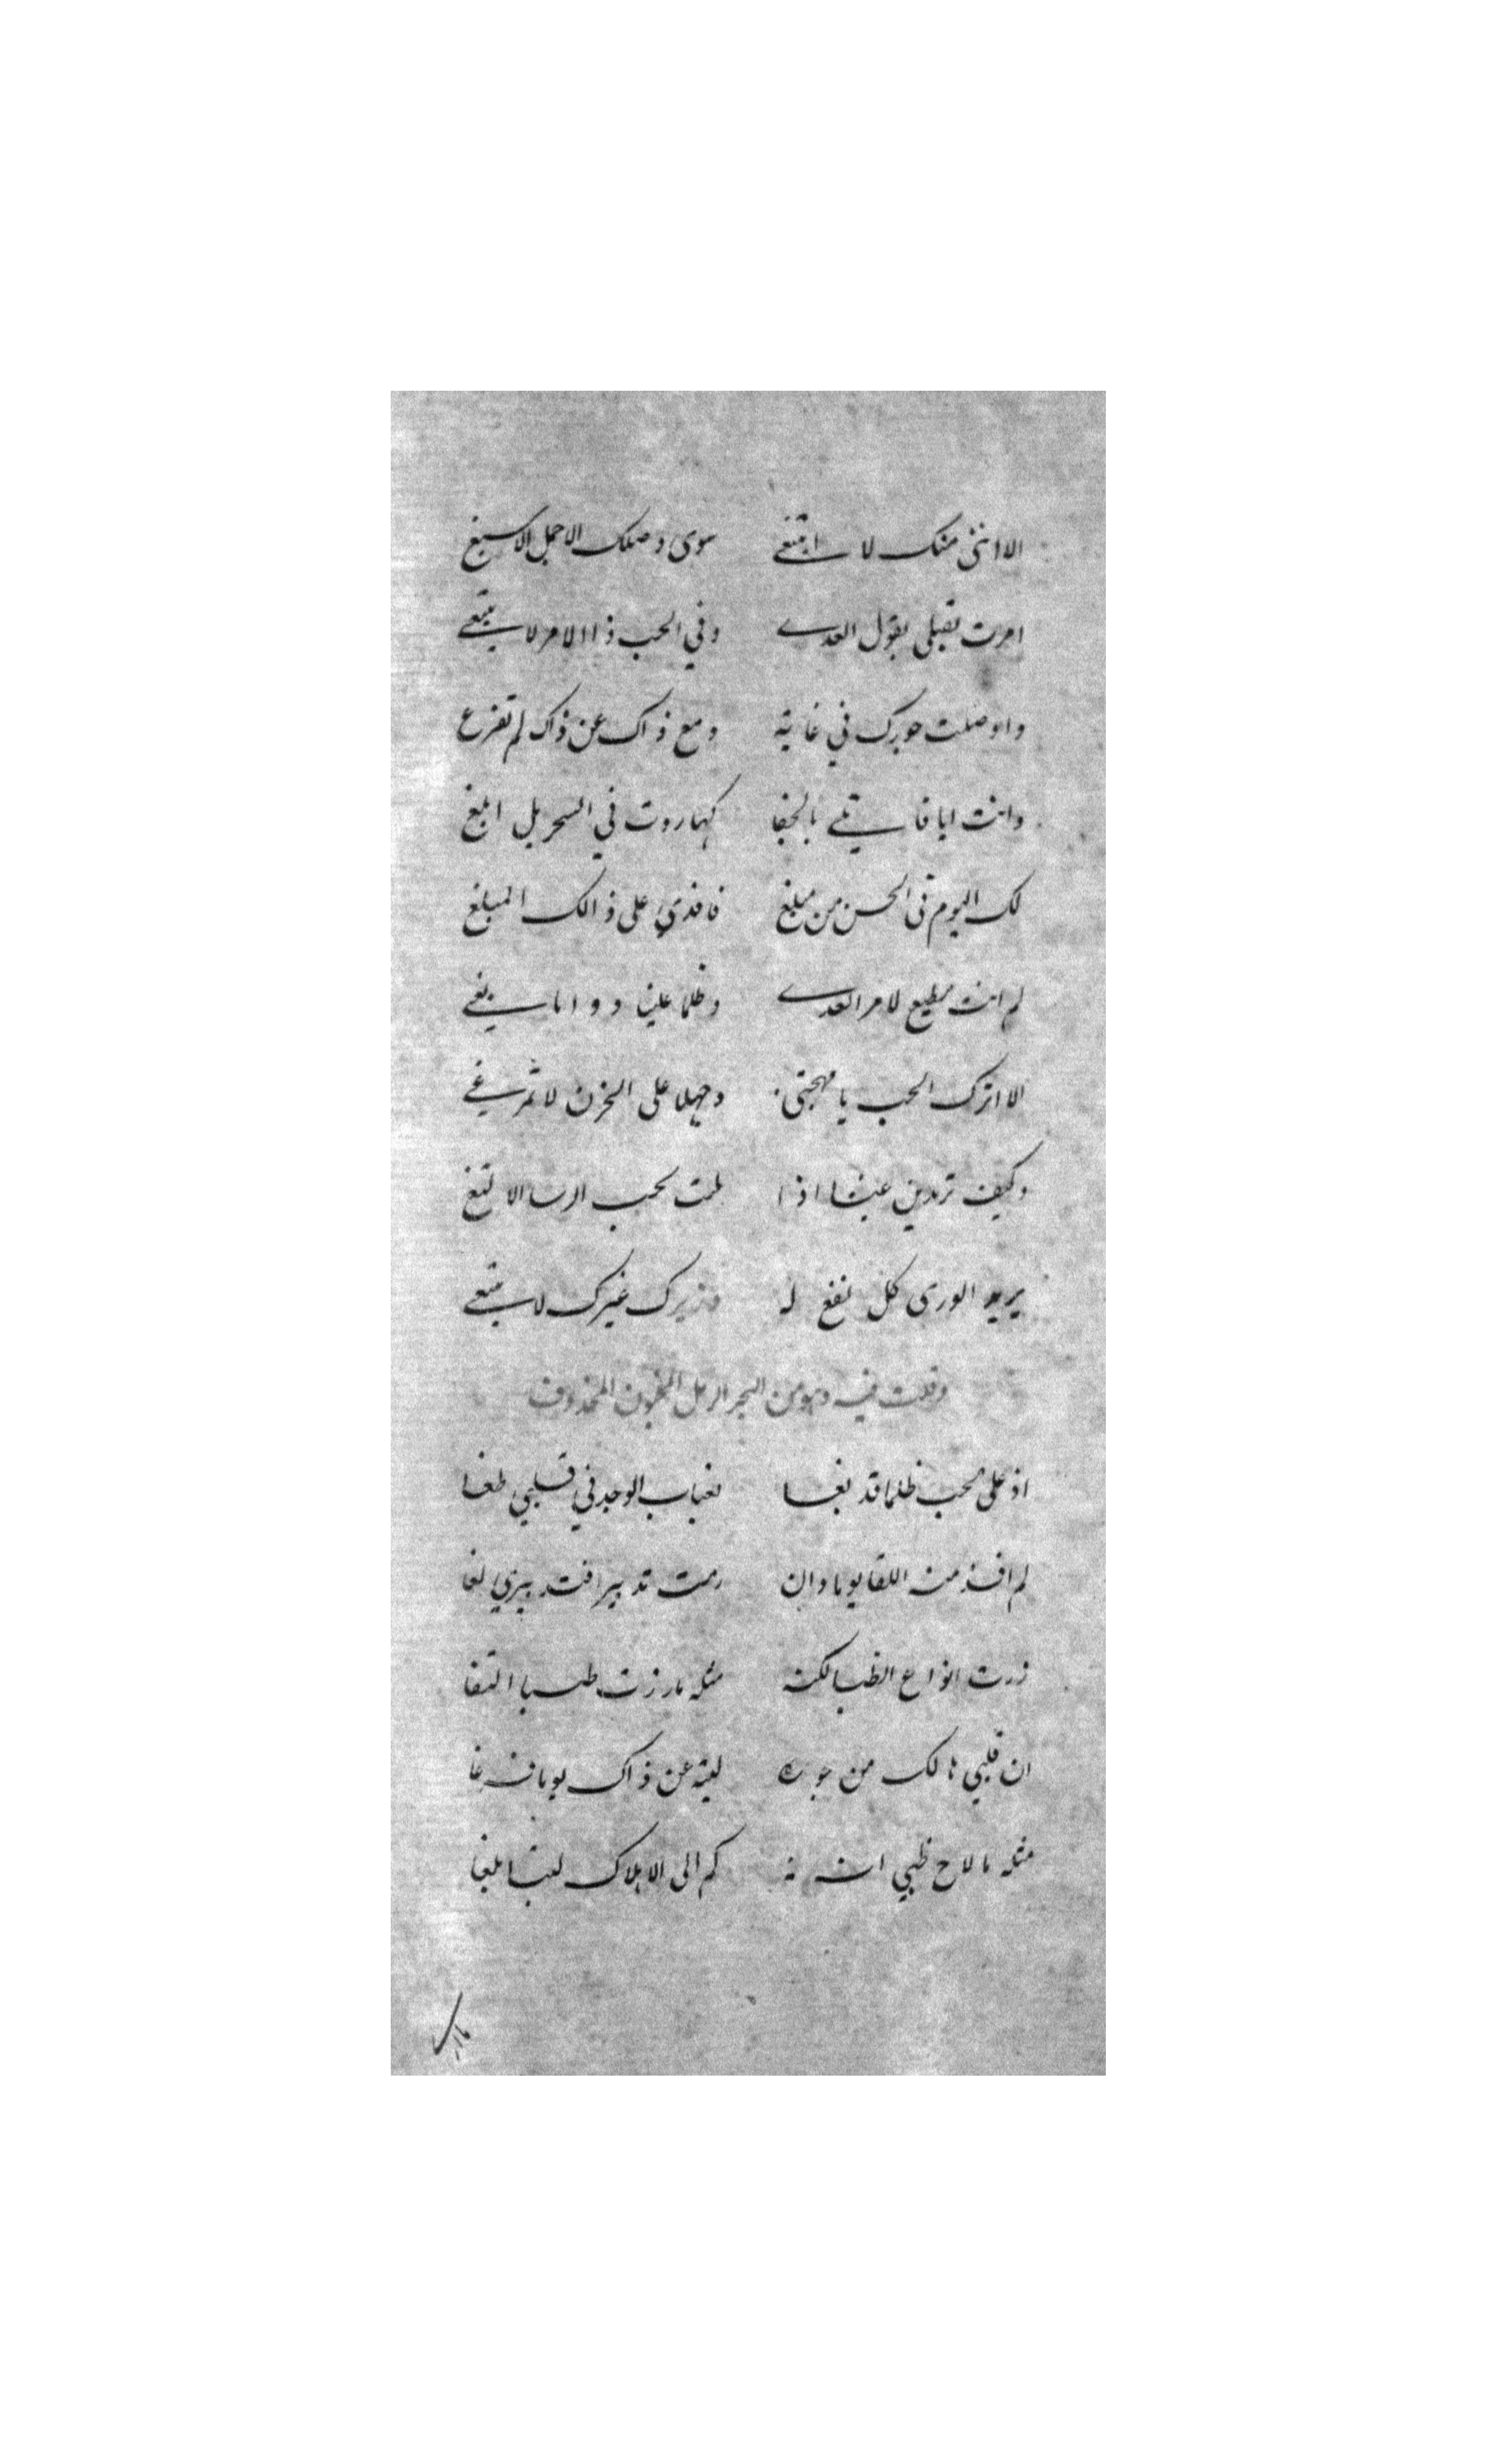 الا اننى منك لا ابتغے سوى وصلك الاجمل الاسبغ
امرت بقتلى بقول العدے وفي الحب ذا الامر لا ينبغے
واوصلت جورك في غاية ومع ذاك عن ذاك لم تفرع
وانت ايا قاتلے بالجفا كهاروت في السحر بل ابلغ
لك اليوم فى الحسن من مبلغ فافدي على ذالك المبلغ
لم انت مطيع لامر العدے وظلما علينا دواما
الا اترك الحب يا مهجتى وجهلا على الحزن لا تمرغے
وكيف تردين عيشا اذا بحب الرسا
يريد الورى كل نفع له غيرك لا يبتغے
وقلت فيه وهو من البحر الرمل المخبون المحذوف
اذ على محب ظلما قد بغا الوجد في قلبي طغا
لم افز منه اللقا يوما وان رمت تدبيرا فتدبيري لغا
زرت انواع الظبا لكنه مثله ما زرت
ان قلبي هالك من جوره ليته عن ذاك يوما فرغا
مثله ما لاح ظبي انه كم الى الاهلاك ليثا بلغا